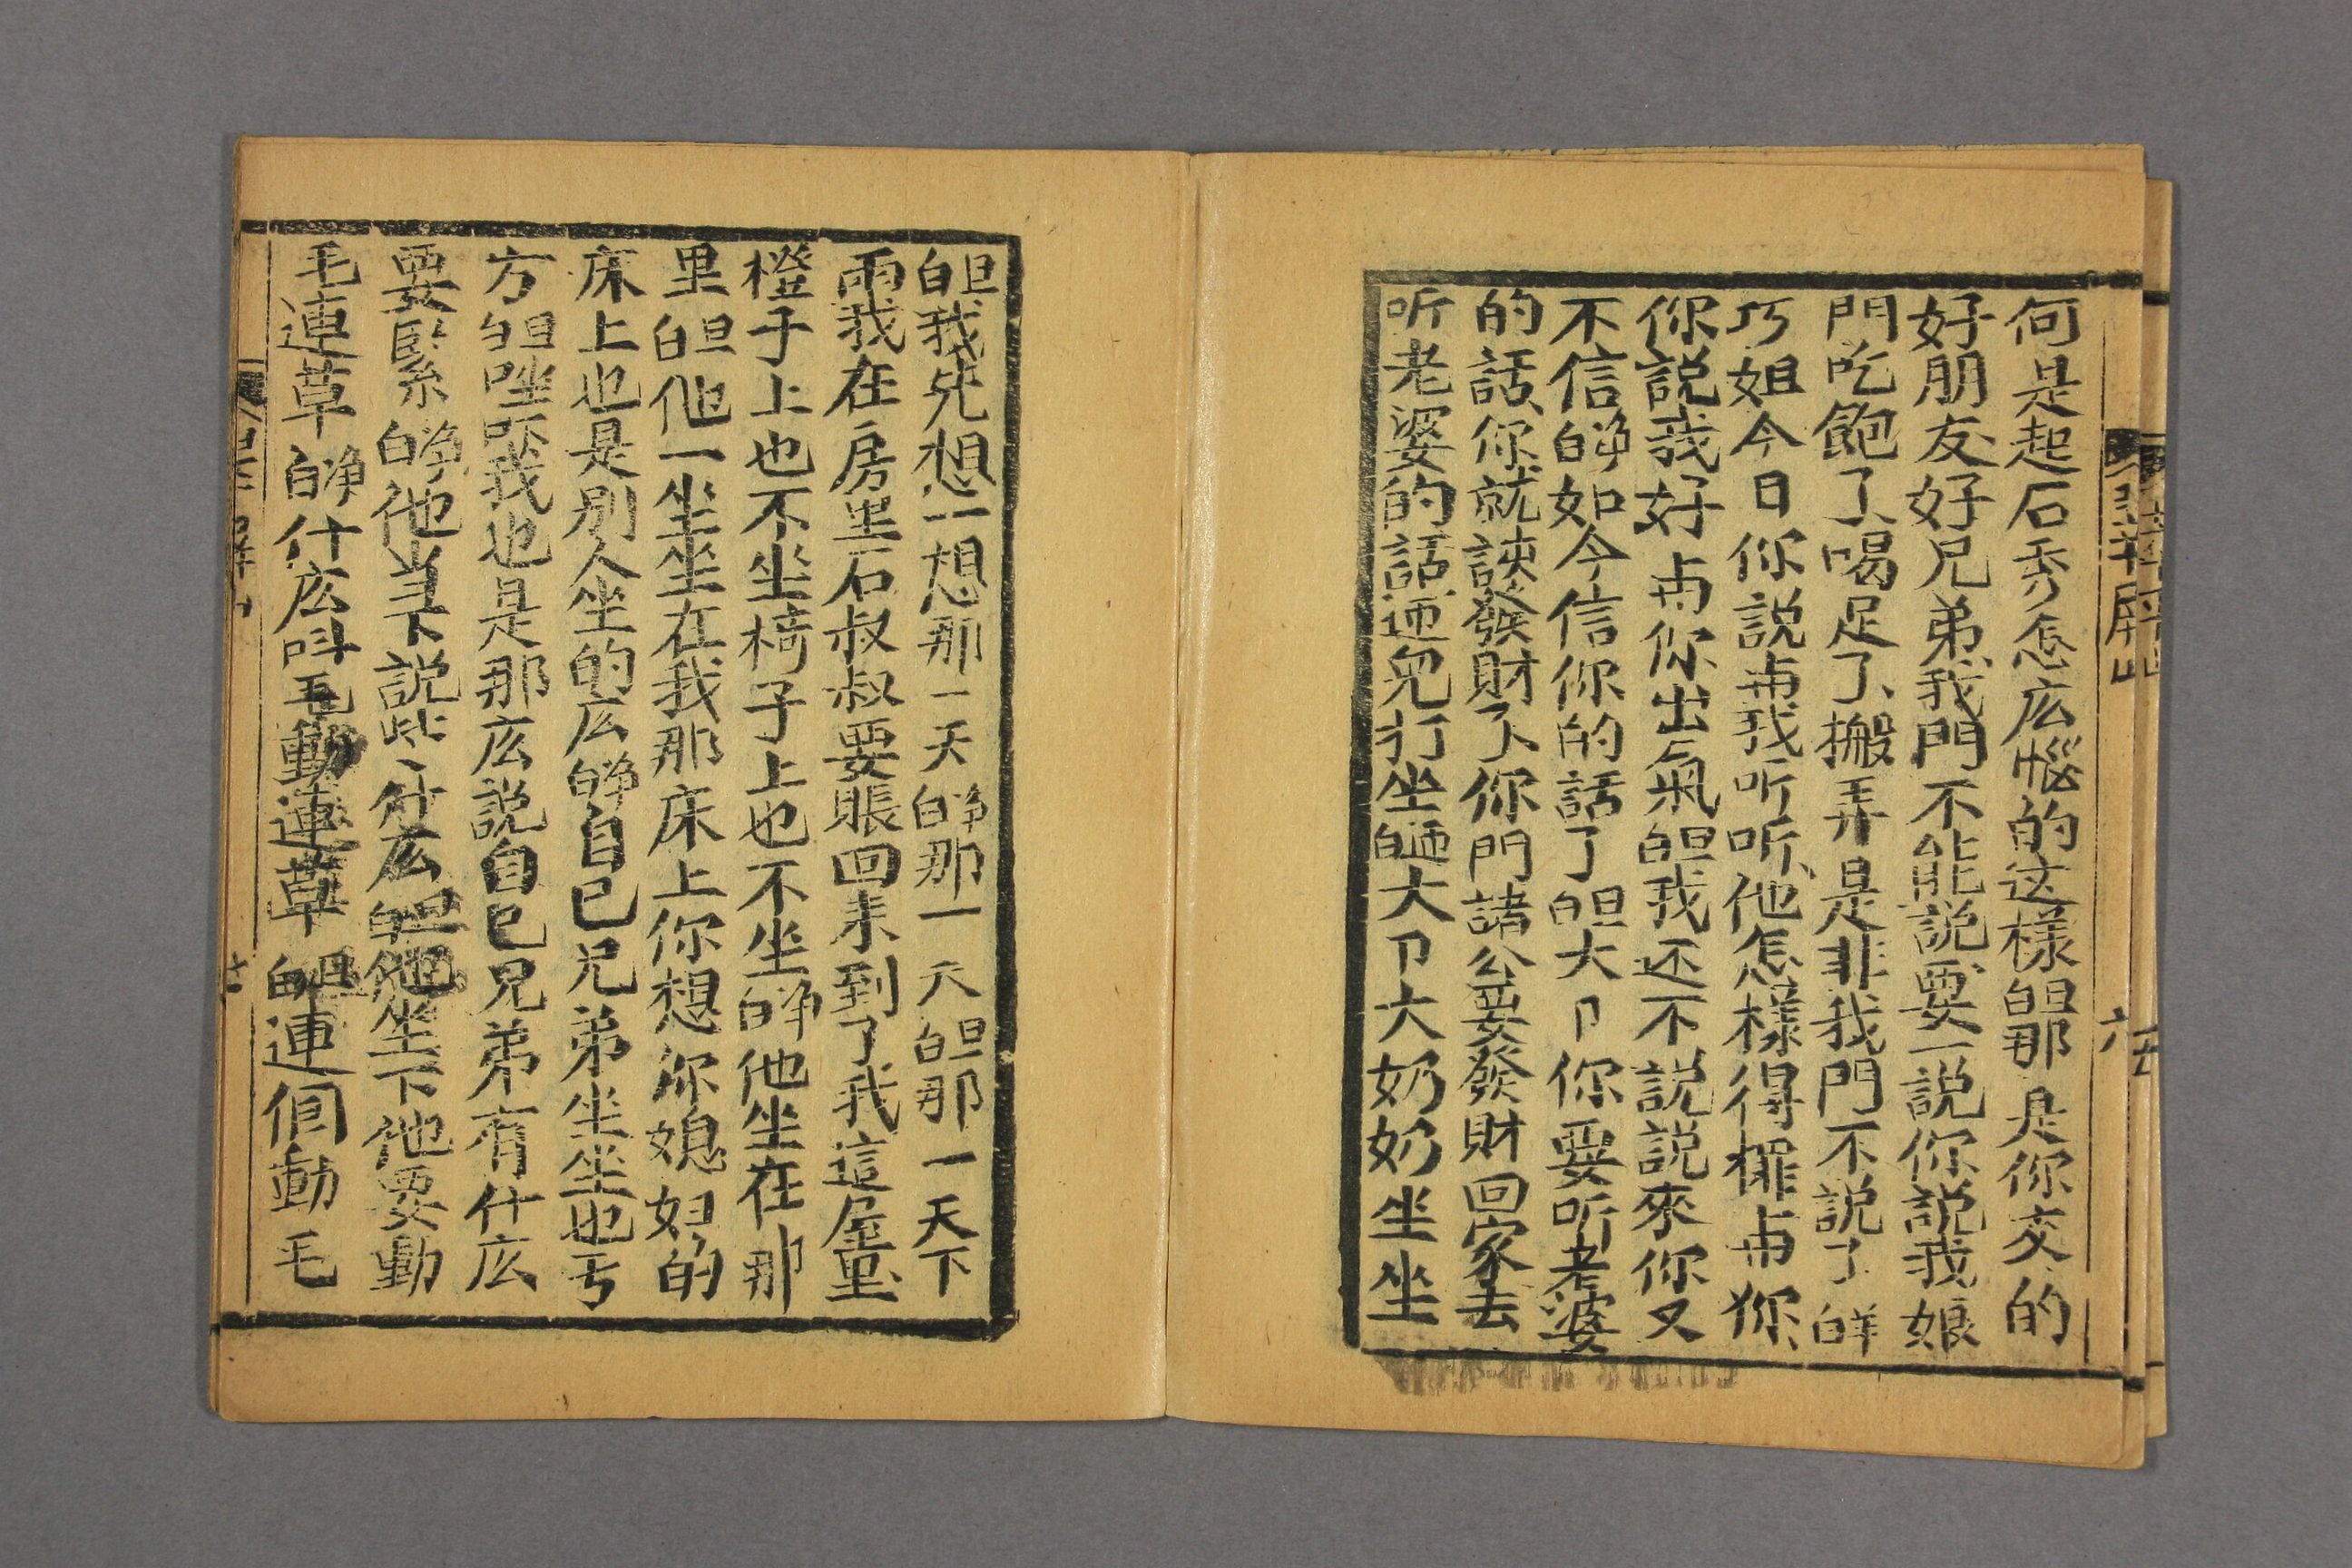 何是起石秀怎広惱的这樣白旦那是你交的
好朋友好兄弟我門不能説要一説你説我娘
門吃飽了喝足了搬弄是非我門不説了白羊
巧姐今日你説我听听他怎樣得罪你
你説我好你出氣白旦我还不説説來你又
不信白净如今信你的話了白旦大卩你要听老婆
的話你就發財了你門諸公要發財回家去
听老婆的話兒打坐白大卩大奶奶坐坐
翠屏山
六
白旦我兄想一想那一天白净那一天白旦那一天下
雨我在房里石叔叔要賬回来到了我這屋里
橙子上也不坐椅子上也不坐白净他坐在那
里白旦他一坐坐在我那床上你想你媳妇的
床上也是別人坐的広白净自己兄弟坐坐也亐
方白旦呸我也是那広説自己兄弟有什広
要緊白净他坐下説些什広白旦他坐下他要動
毛連草白净什広呌毛動連草白旦連個動毛